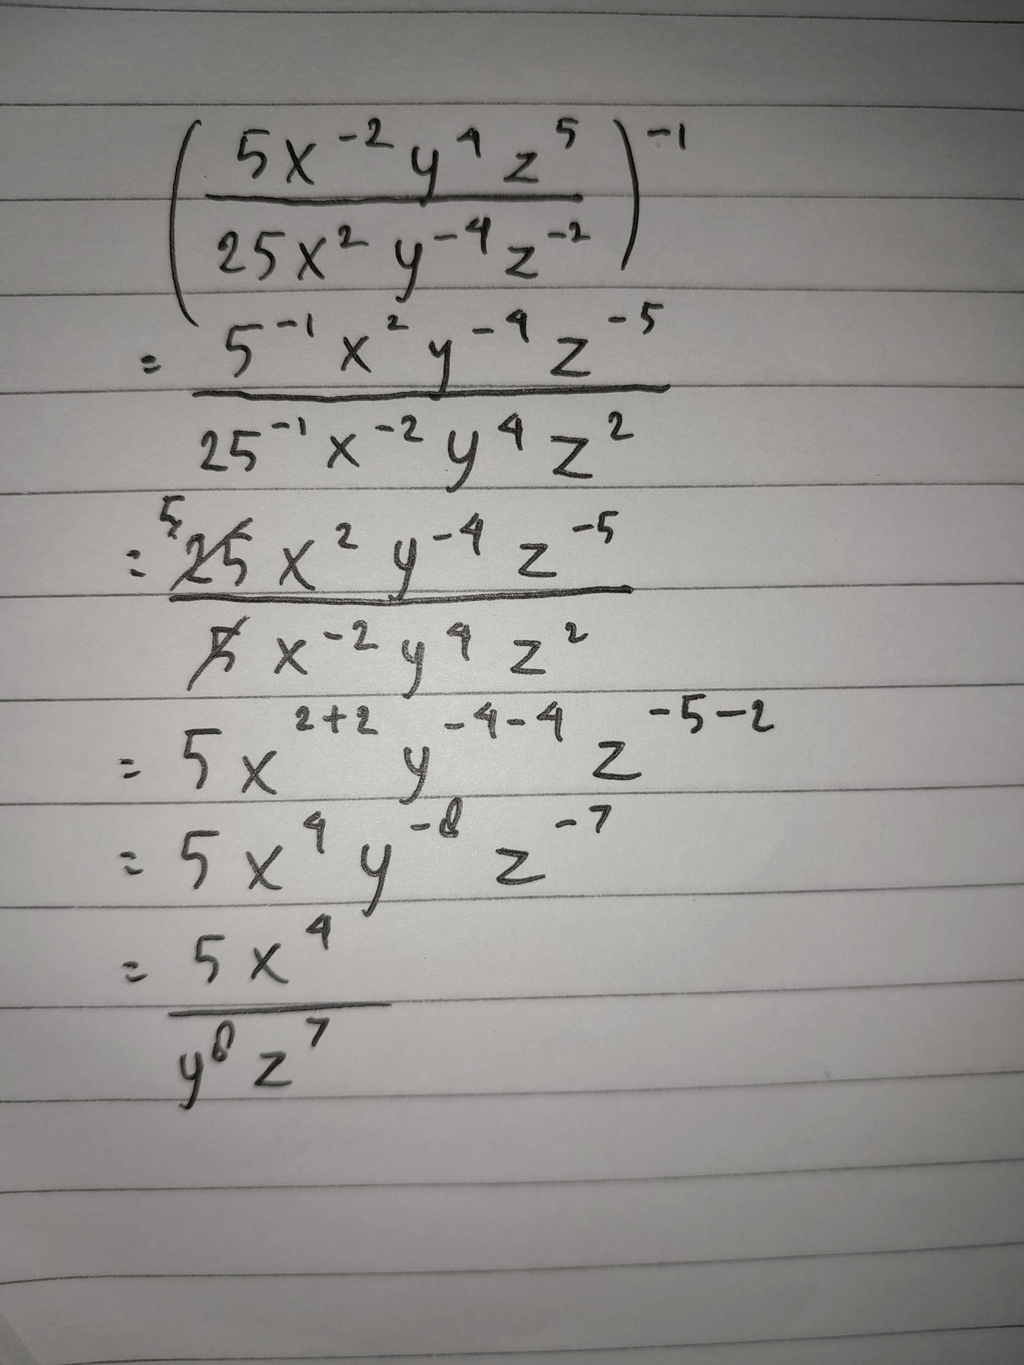 ( 5x⁻² y⁴ z⁵ / 25x² y⁻⁴ z⁻² )⁻¹
= 5⁻¹ x² y⁻⁴ z⁻⁵ / 25⁻¹ x⁻² y⁴ z²
= ⁵25 x² y⁻⁴ z⁻⁵ / 5 x⁻² y⁴ z²
= 5x²⁺² y⁻⁴⁻⁴ z⁻⁵⁻²
= 5x⁴ y⁻⁸ z⁻⁷
= 5x⁴ / y⁸ z⁷